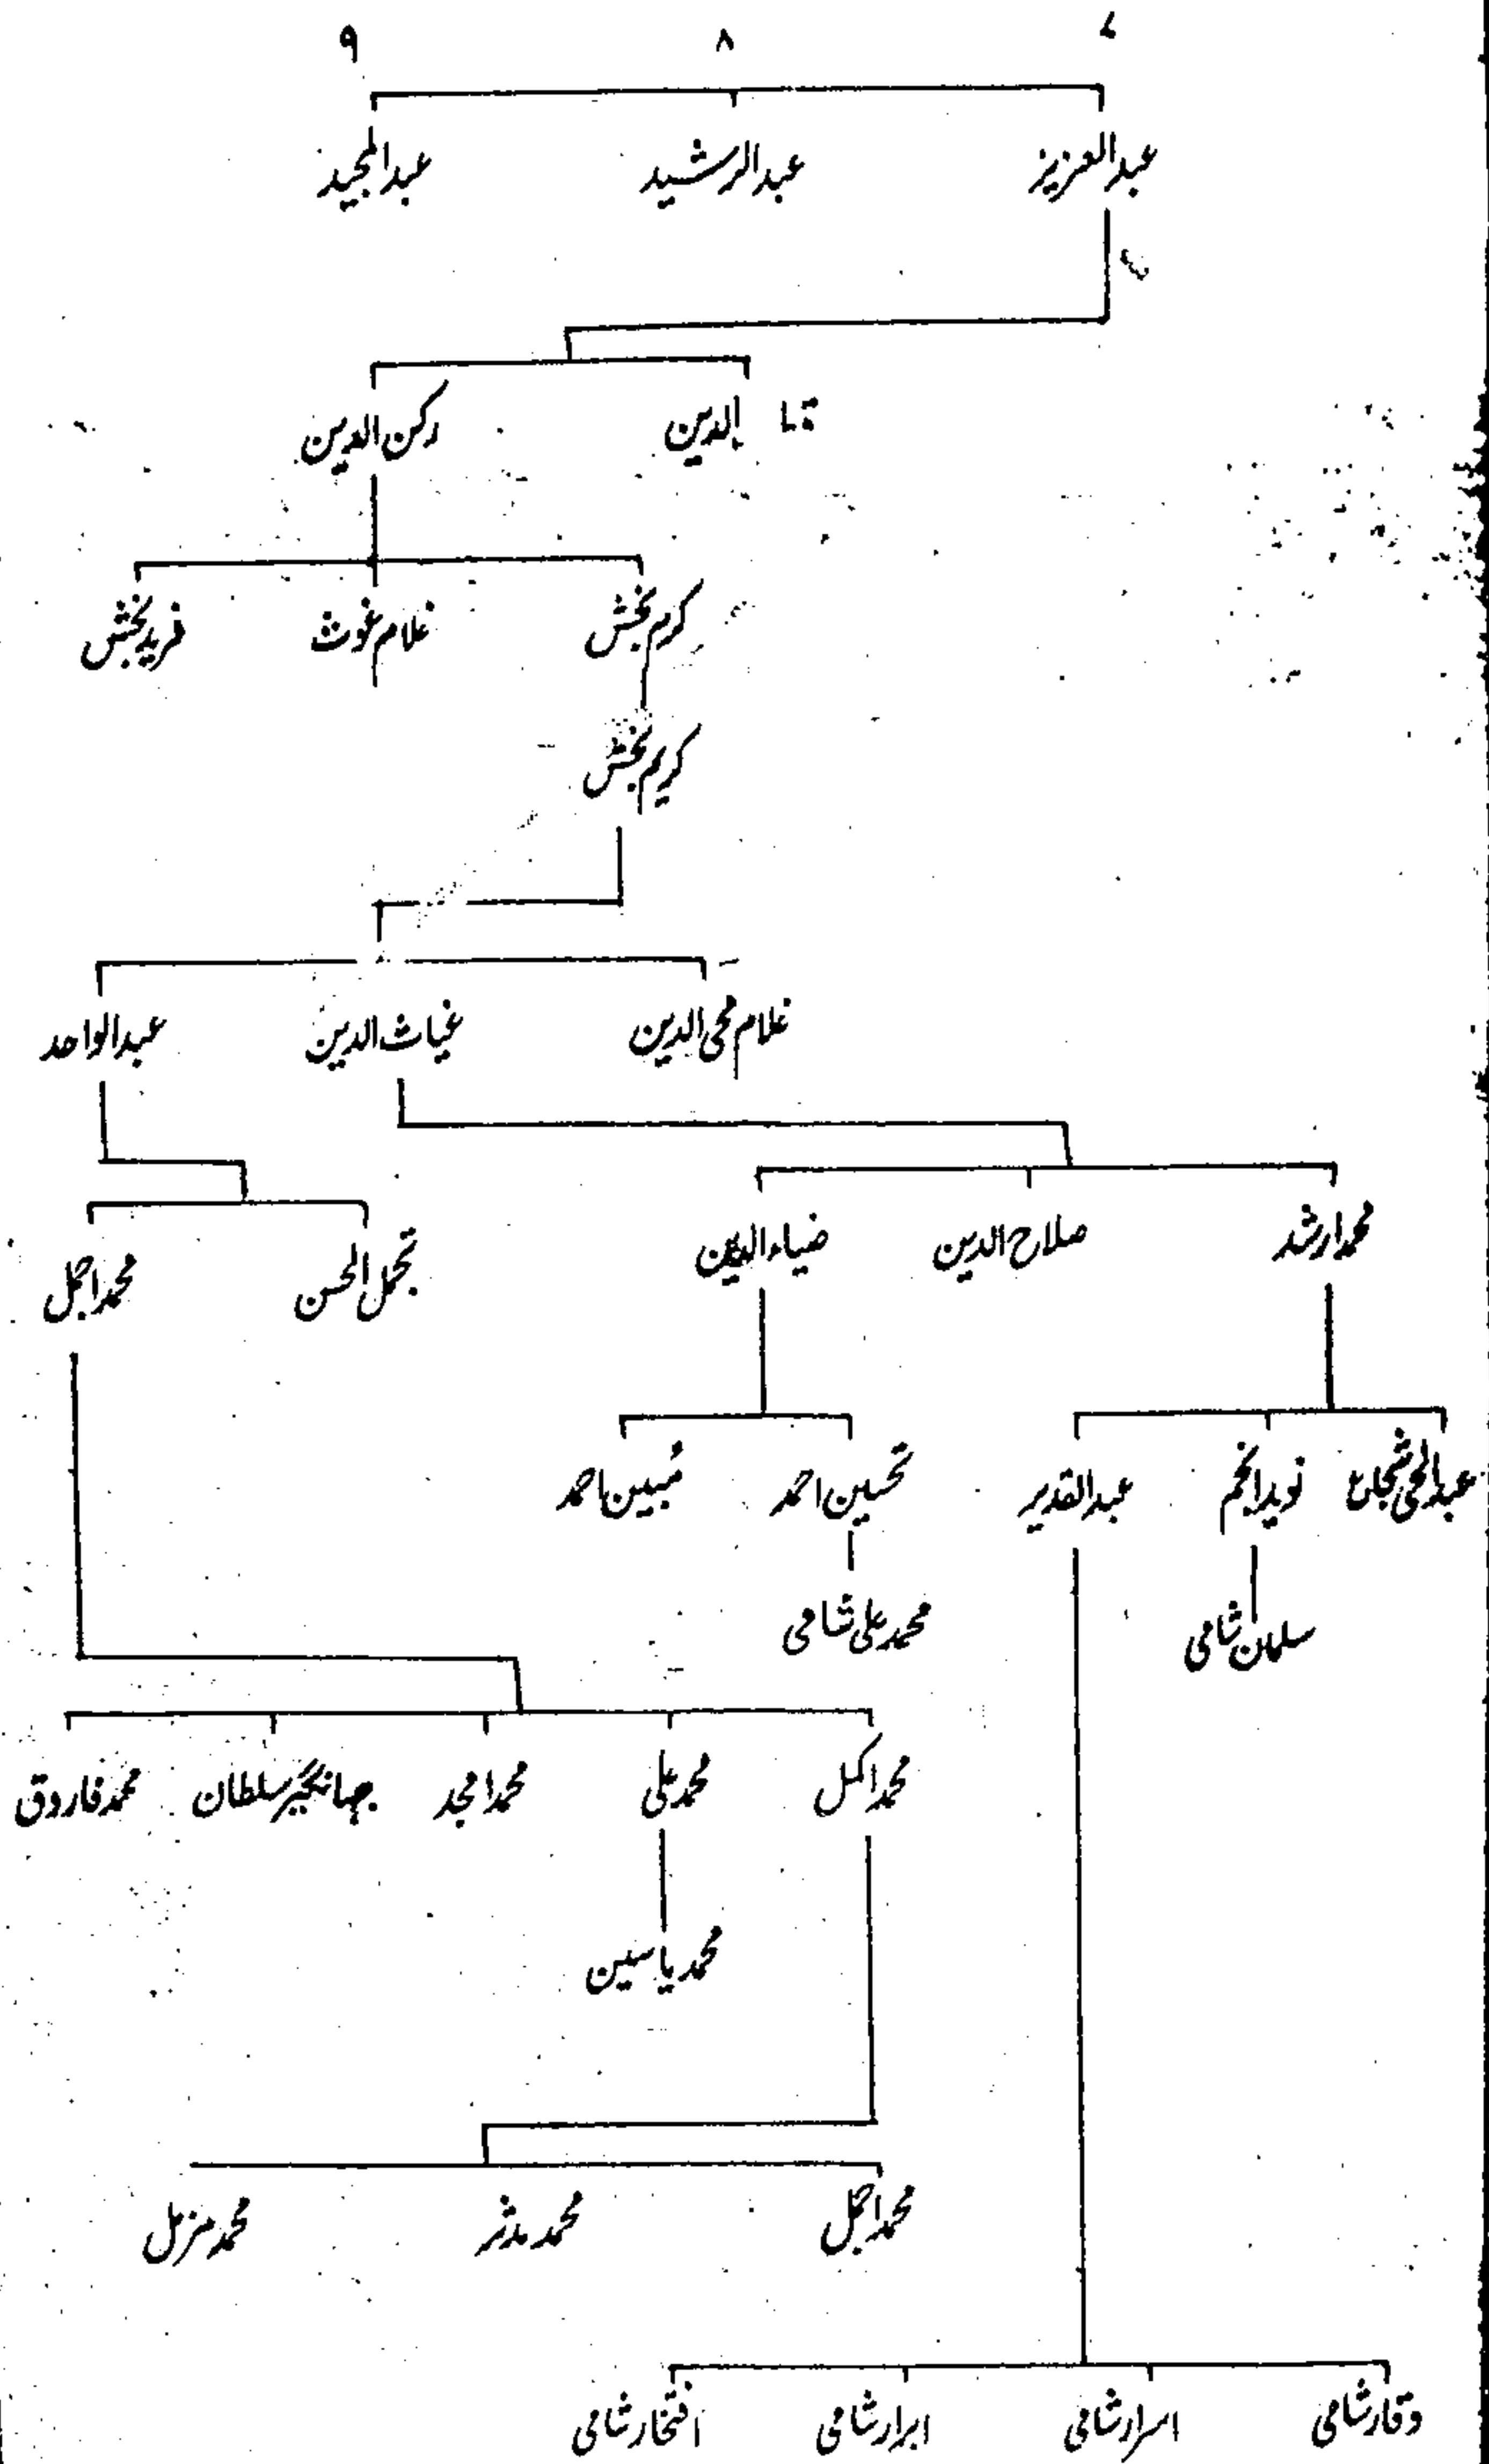 ۷ ۸ ۹
عبدالعزیز عبدالرشید عبدالمجید
الدین رکن الدین
کرم بخش غلام غوث فرید بخش
کریم بخش
غلام محی الدین غیاث الدین عبدالواحد
محمد ارشد صلاح الدین ضیاء الدین تجمل الحسن محمد اجمل
عبدالحی شجاع نوید انجم عبدالقدیر تحسین احمد مُبین احمد
سلمان شامی محمد علی شامی
محمد اکمل محمد علی محمد امجد جہانگیر سلطان محمد فاروق
محمد یاسین
محمد اجمل محمد مدثر محمد مزمل
وقار شامی اسرار شامی ابرار شامی افتخار شامی